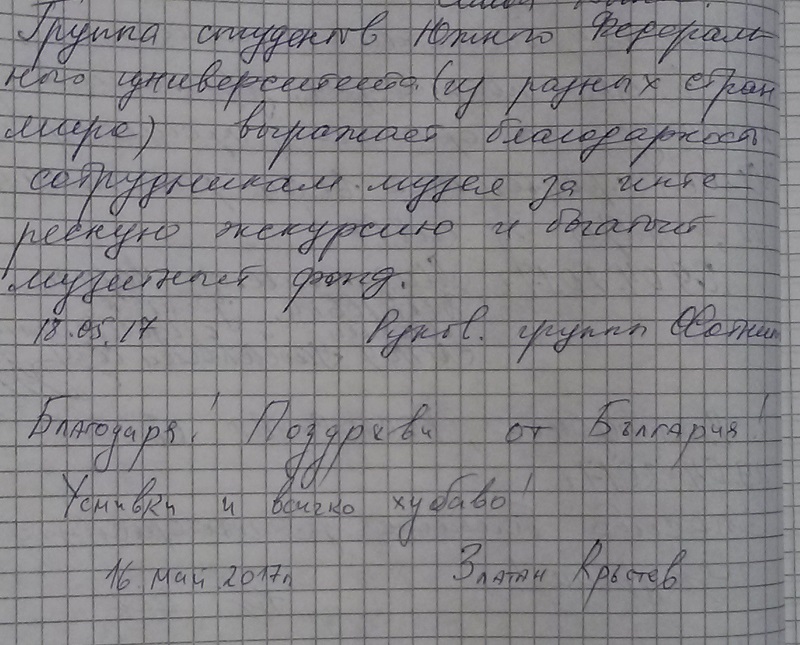 Группа студентов Южного Федераль-
ного университета (из разных стран
мира) выражает благодарность
сотрудникам музея за инте-
ресную экскурсию и богатый
музейный фонд.
18.05.17 Руков. группы
Благодаря! Поздрави от България!
Усмивки и всичко хубаво!
16 май 2017г Златан Кръстев